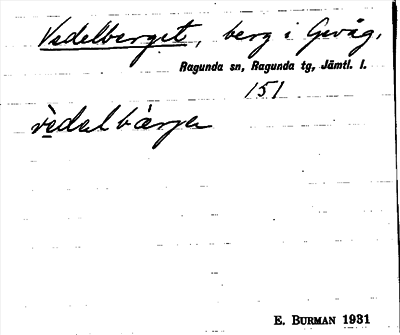 Vedelberget, berg i Gevåg,
Ragunda sn, Ragunda tg, Jämtl. l.
151
vèdalbárge
E. BURMAN 1931